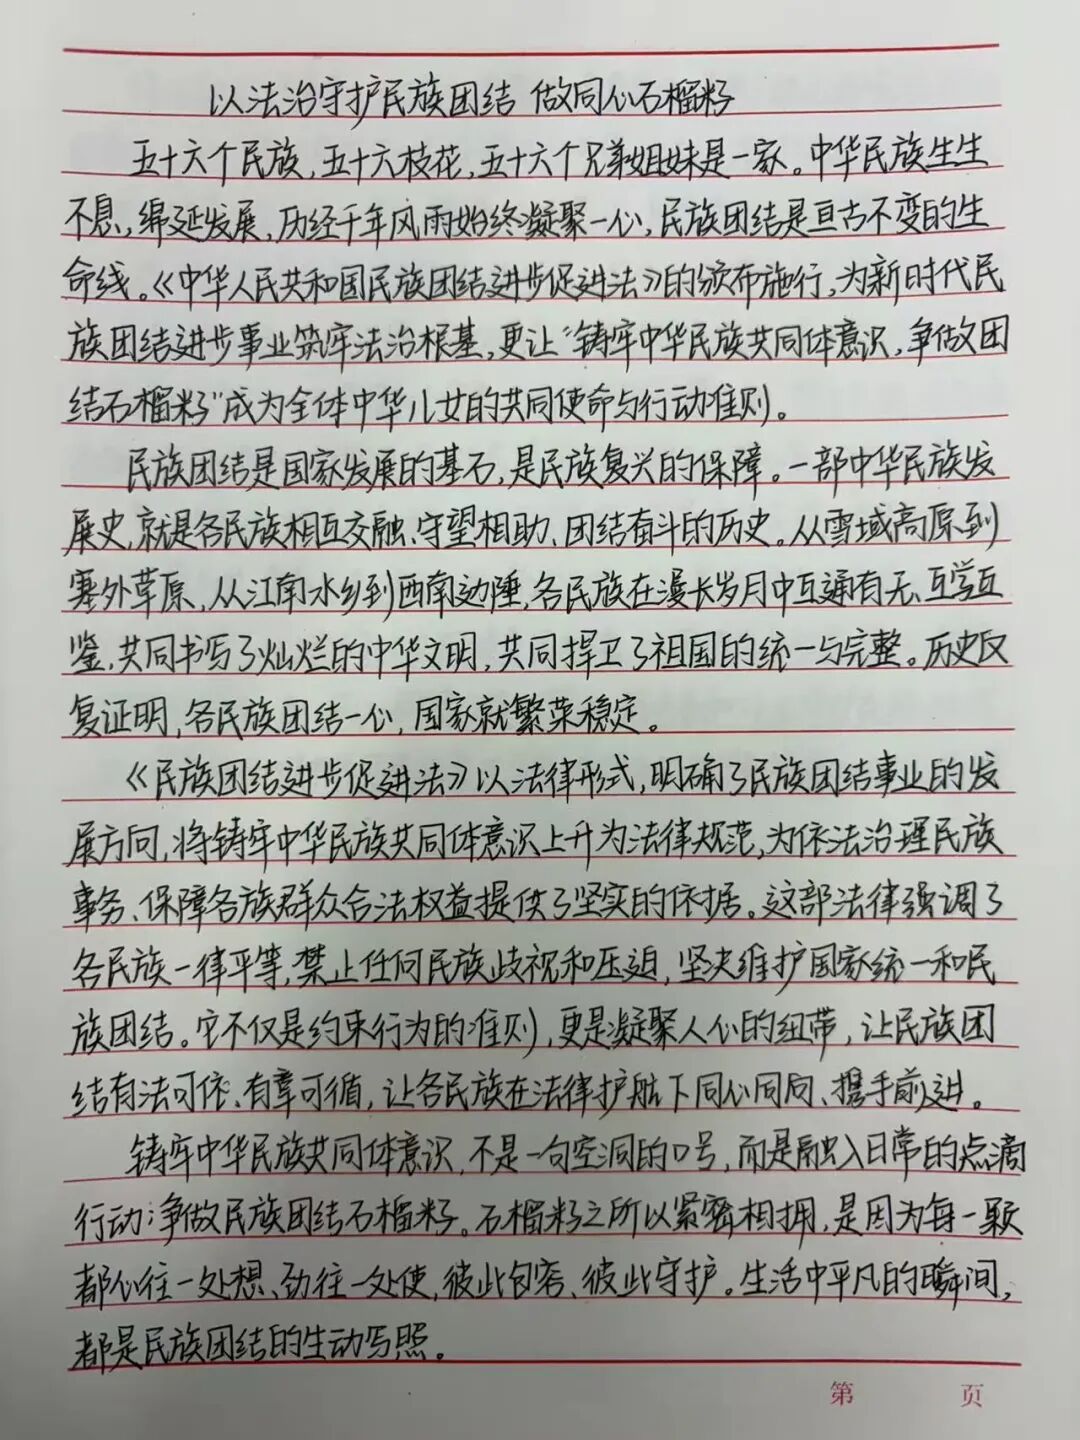 以法治守护民族团结 做同心石榴籽
五十六个民族，五十六枝花，五十六个兄弟姐妹是一家。中华民族生生
不息，绵延发展，历经千年风雨始终凝聚一心，民族团结是亘古不变的生
命线。《中华人民共和国民族团结进步促进法》的颁布施行，为新时代民
族团结进步事业筑牢法治根基，更让“铸牢中华民族共同体意识，争做团
结石榴籽”成为全体中华儿女的共同使命与行动准则。
民族团结是国家发展的基石，是民族复兴的保障。一部中华民族发
展史，就是各民族相互交融、守望相助、团结奋斗的历史。从雪域高原到
塞外草原，从江南水乡到西南边陲，各民族在漫长岁月中互通有无、互学互
鉴，共同书写了灿烂的中华文明，共同捍卫了祖国的统一与完整。历史反
复证明，各民族团结一心，国家就繁荣稳定。
《民族团结进步促进法》以法律形式，明确了民族团结事业的发
展方向，将铸牢中华民族共同体意识上升为法律规范，为依法治理民族
事务、保障各族群众合法权益提供了坚实的依据。这部法律强调了
各民族一律平等，禁止任何民族歧视和压迫，坚决维护国家统一和民
族团结。它不仅是约束行为的准则，更是凝聚人心的纽带，让民族团
结有法可依、有章可循，让各民族在法律护航下同心同向、携手前进。
铸牢中华民族共同体意识，不是一句空洞的口号，而是融入日常的点滴
行动；争做民族团结石榴籽。石榴籽之所以紧密相拥，是因为每一颗
都心往一处想、劲往一处使，彼此包容、彼此守护。生活中平凡的瞬间，
都是民族团结的生动写照。
第 页